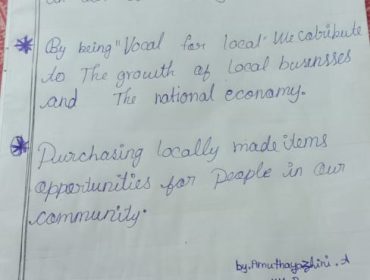 By being "Vocal for local" We cotribute
to The growth of local businsses
and The national economy.
Purchasing locally made items
opportunities for People in our
community.
by. Amuthayazhini. A